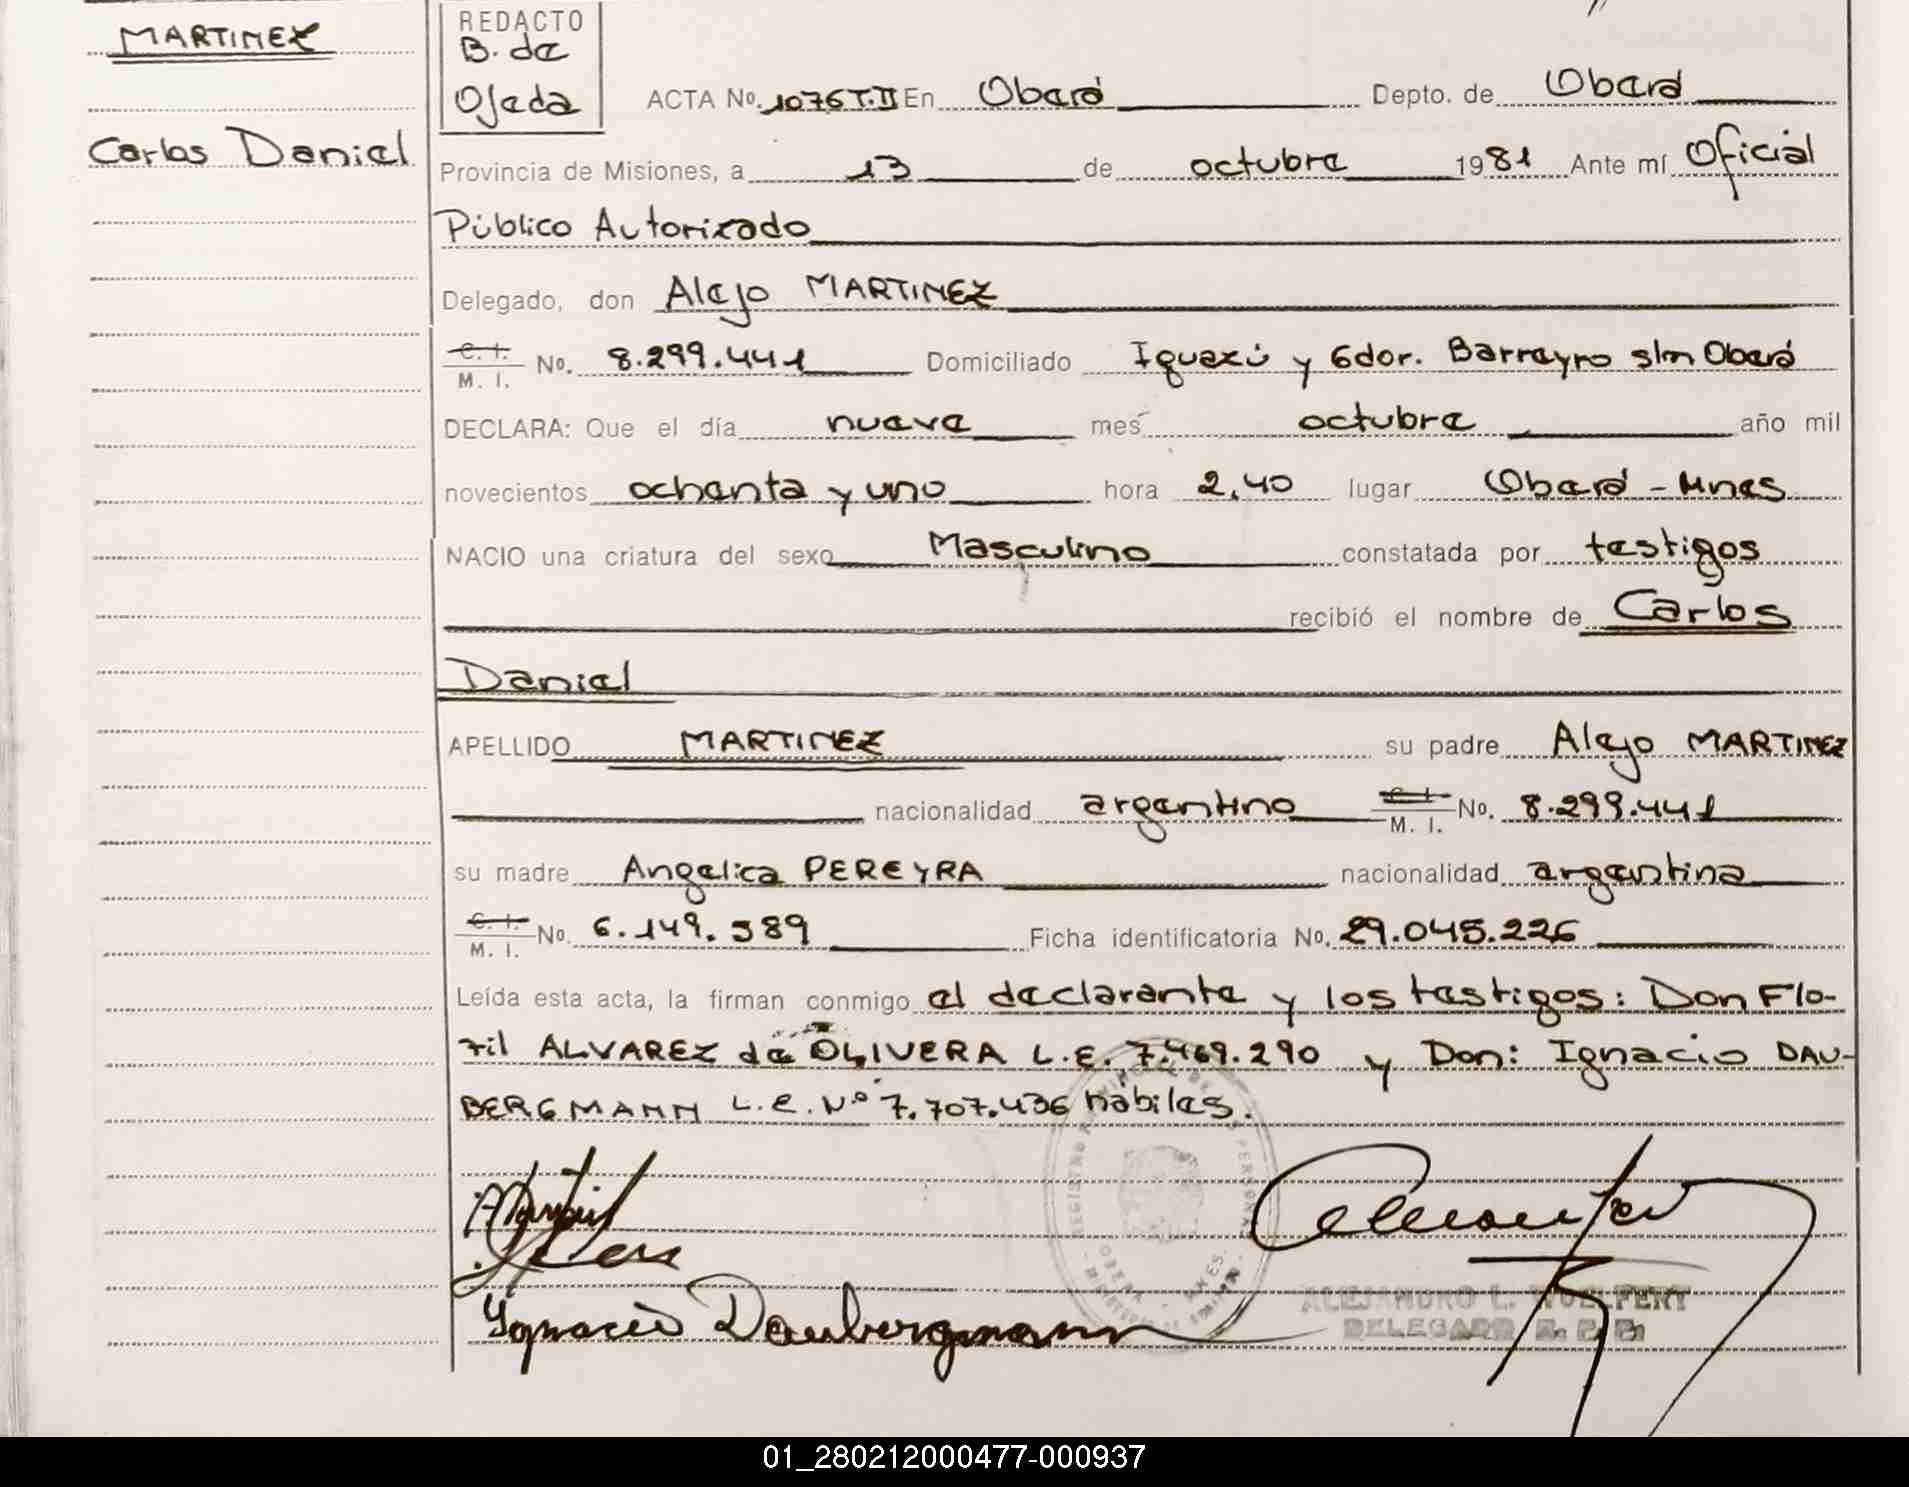 MARTINEZ
Carlos Daniel
REDACTO
B. de
Ojeda
ACTA No. 1076 T.II En Oberá Depto. de Oberá
Provincia de Misiones, a 13 de octubre 1981 Ante mí Oficial
Público Autorizado
Delegado, don Alejo MARTINEZ
C. I.
M. I. No. 8.299.441 Domiciliado Iguazú y Gdor. Barreyro s/n Oberá
DECLARA: Que el día nueve mes octubre año mil
novecientos ochenta y uno hora 2,40 lugar Oberá - Mnes
NACIO una criatura del sexo Masculino constatada por testigos
recibió el nombre de Carlos
Daniel
APELLIDO MARTINEZ su padre Alejo MARTINEZ
nacionalidad argentino C. I.
M. I. No. 8.299.441
su madre Angelica PEREYRA nacionalidad argentina
C. I.
M. I. No. 6.149.389 Ficha identificatoria No. 29.045.226
Leída esta acta, la firman conmigo el declarante y los testigos: Don Flo-
ril ALVAREZ de OLIVERA L.E. 7.469.290 y Don: Ignacio DAU-
BERGMANN L.E. Nº 7.707.436 habiles.
Ignacio Daubergmann
ALEJANDRO L. WOELFERT
DELEGADO R. P. P.
01_280212000477-000937